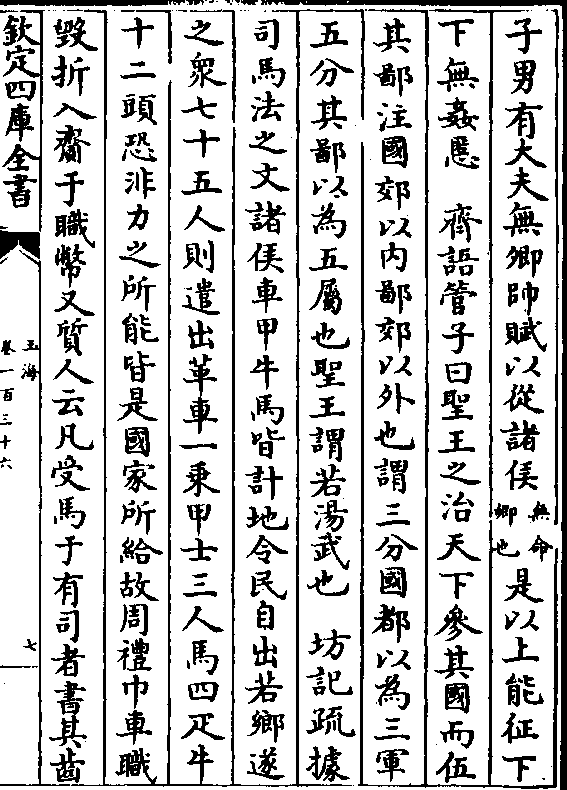 子男有大夫無卿帥賦以從諸侯無命卿也是以上能征下
下無姦慝　齊語管子曰聖王之治天下參其國而伍
其鄙注國郊以内鄙郊以外也謂三分國都以為三軍
五分其鄙以為五屬也聖王謂若湯武也　坊記疏據
司馬法之文諸侯車甲牛馬皆計地令民自出若鄉遂
之衆七十五人則遣出革車一乗甲士三人馬四疋牛
十二頭恐非力之所能皆是國家所給故周禮巾車職
毁折入齎于職幣又質人云凡受馬于有司者書其齒
欽定四庫全書
玉海
卷一百三十六
七